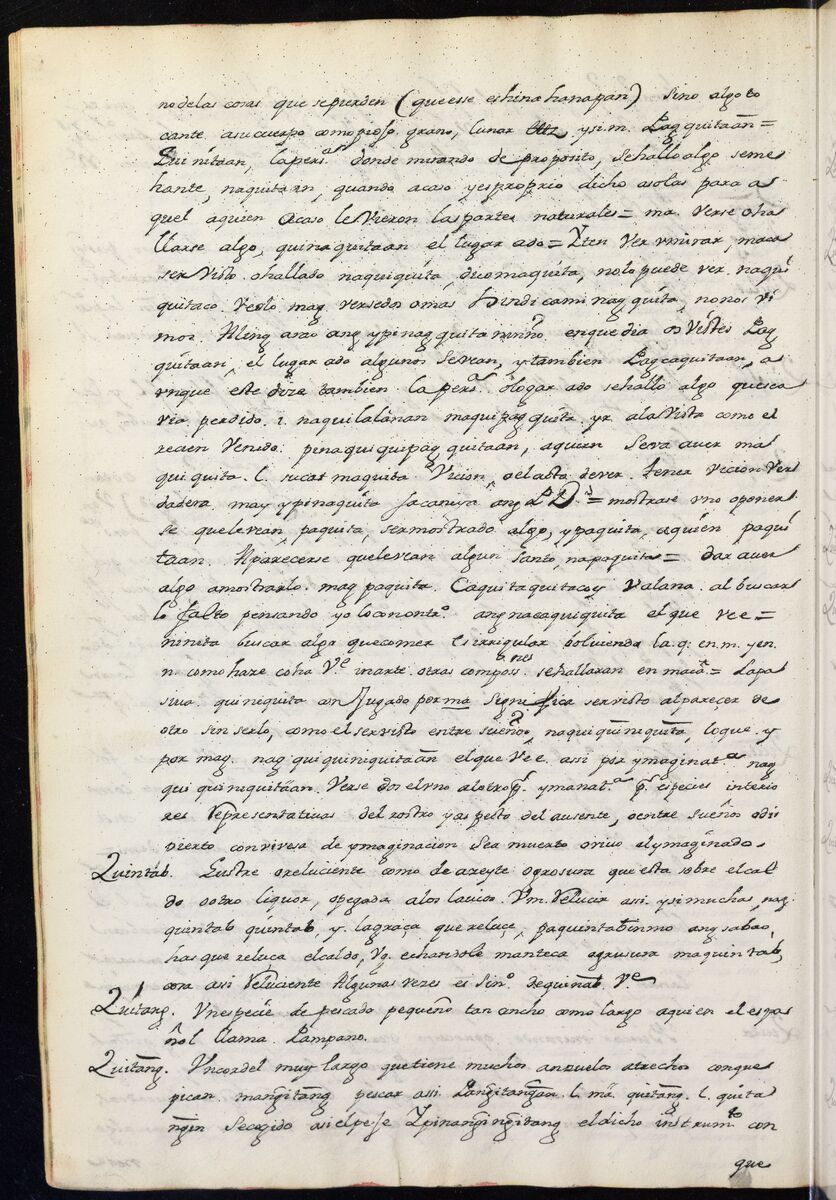 no de las cosas que se pierden (que esse es hina hanapan) sino algo to
cante asu cuerpo como piojo, grano, lunar &z ysi. m. Pag quitaan =
Quinitaan, la pers.ª donde mirando de proposito, se hallo algo seme
hante, naquitaan, quando acaso, yes proprio dicho asolas para a
quel a quien acaso le vieron las partes naturales = ma. verse o ha
llarse algo, quinaquitaan el lugar ado = Yten ver v mirar, maca
ser visto o hallado naquiquita, di co maquita, no lo puede ver, naqui
quitaco. veolo mag. verse dos o mas hindi cami nag quita, no nos vi
mos. Aling arao ang ypinag quita ninño en que dia os vistes Pag
quitaan, el lugar ado algunos se vean, y tambien Pagcaquitaan, a
vnque este dize tambien la pers.ª o logar ado se hallo algo que se a
via perdido. i. naquilalanan maquipag quita. yr ala vista como el
recien venido: pinaquiquipag quitaan, aquien se va a ver ma
quiquita. l. sucat maquita. Vicion, o el acto de ver. tener vicion ver
dadera. may ypinaquita sa caniya ang P. D.s = mostrarse vno o poner
se que le vean, paquita, ser mostrado algo, ypaquita, a quien paqui
taan. Aparecerse que le vean algun santo, napaquita = dar a ver
algo amostrarlo. mag paquita. Caquitaquitacoy valana. al buscar
lo falto pensando yo lo con ontr.º ang nacaquiquita el que vee =
ninita buscar algo que comer es irrigular bolviendo la. q: en. m. y en
n. como haze coha Ve inarte. otras composi.nes se hallaran en maca = La pa
siva. quiniquita conjugado por ma significa ser visto al parecer de
otro sin serlo, como el ser visto entre sueños, naquiquiniquita, lo que. y
por mag. nag quiquiniquitaan el que vee. assi por ymaginat.ª nag
quiquiniquitaan. Verse dos el vno al otro p.r ymanat.ª p.r especies interio
res representativas del rostro y aspecto del ausente, o entre sueños o di
vierto con viveza de ymaginacion sea muerto o vivo el ymaginado.
Quintab. Lustre o reluciente como de azeyte o grosura que esta sobre el cal
do o otro liquor, o pegada a los lavios. Vm. relucir asi. y si muchas, nag
quintab quintab, y. la graça que reluçe, paquintabinmo ang sabao,
has que reluça el caldo, Vg. echandole manteca a grusura maquintab,
cosa asi reluciente Algunas vezes es sin.º de quinab. Ve
Quitang. Vn especie de pescado pequeño tan ancho como largo aquien el espa
ñol llama. Pampano.
Quitang. Vn cordel muy largo que tiene muchos anzuelos a trechos con que
pican. mangitang pescar asi. Pangitangan. l. ma. quitang. l. quita
ngin se cogido asi el peje Ypinangingitang el dicho instrum.to con
que